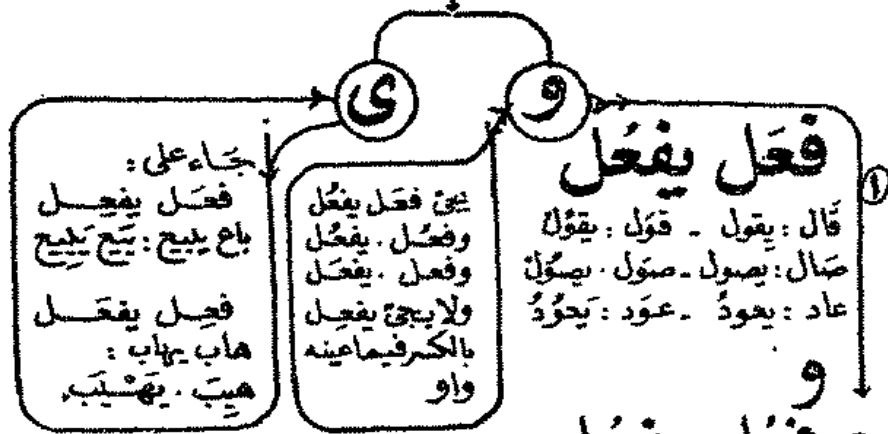 و
ى
فَعَل يفعُل
①
قَال : يقول - قوَل : يقوُل
صَال : يصول - صوَل . يصوُل
عاد : يعودُ - عوَد : يَعوُدُ
و
يجئ فعَل يفعُل
وفعُل . يفعُل
وفعل . يفعَل
ولا يجئ يفعِل
بالكسر فيما عينه
واو
جَاء على :
فعَل يفعِل
باع يبيع : بَيَع يَبيِع
فعِل يفعَل
هاب يهاب :
هيِبَ . يَهْيَب